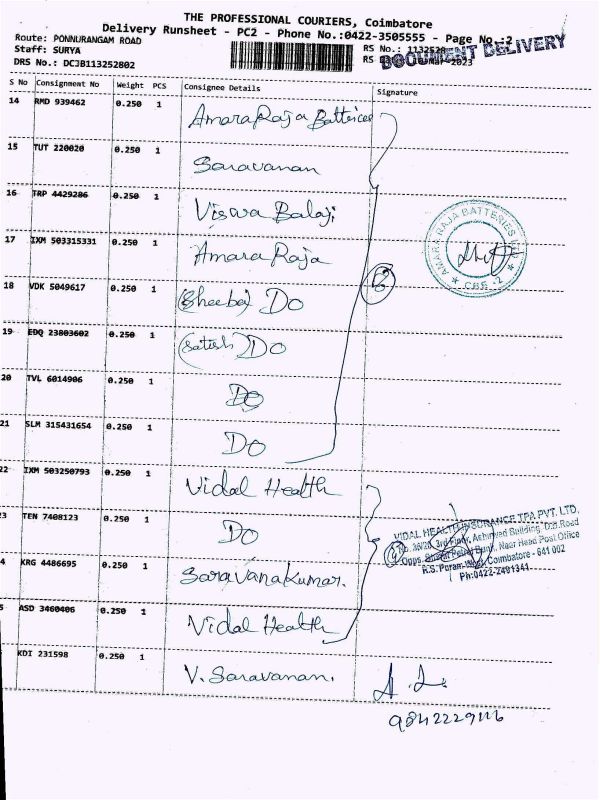 THE PROFESSIONAL COURIERS, Coimbatore
Delivery Runsheet - PC2 - Phone No.:0422-3505555 - Page No.:2
Route: PONNURANGAM ROAD
RS No.: 1132528
Staff: SURYA
DOCUMENT DELIVERY
DRS No.: DCJB113252802
S No Consignment No Weight PCS Consignee Details Signature
14 RMD 939462 0.250 1 Amara Raja Batteries
15 TUT 220020 0.250 1 Saravanan
16 TRP 4429286 0.250 1 Viswa Balaji
17 IXM 503315331 0.250 1 Amara Raja
AMARA RAJA BATTERIES
CBE - 2
18 VDK 5049617 0.250 1 (Sheeba) Do
19 EDQ 23803602 0.250 1 (Satish) Do
20 TVL 6014906 0.250 1 Do
21 SLM 315431654 0.250 1 Do
22 IXM 503250793 0.250 1 Vidal Health
23 TEN 7408123 0.250 1 Do
VIDAL HEALTH INSURANCE TPA PVT. LTD.
3rd Floor, Ashirwad Building, D.B.Road
Bank, Near Head Post Office
R.S. Puram West, Coimbatore - 641 002
Ph:0422-2491341
4 KRG 4486695 0.250 1 Saravanakumar.
5 ASD 3460406 0.250 1 Vidal Health
KDI 231598 0.250 1 V. Saravanan.